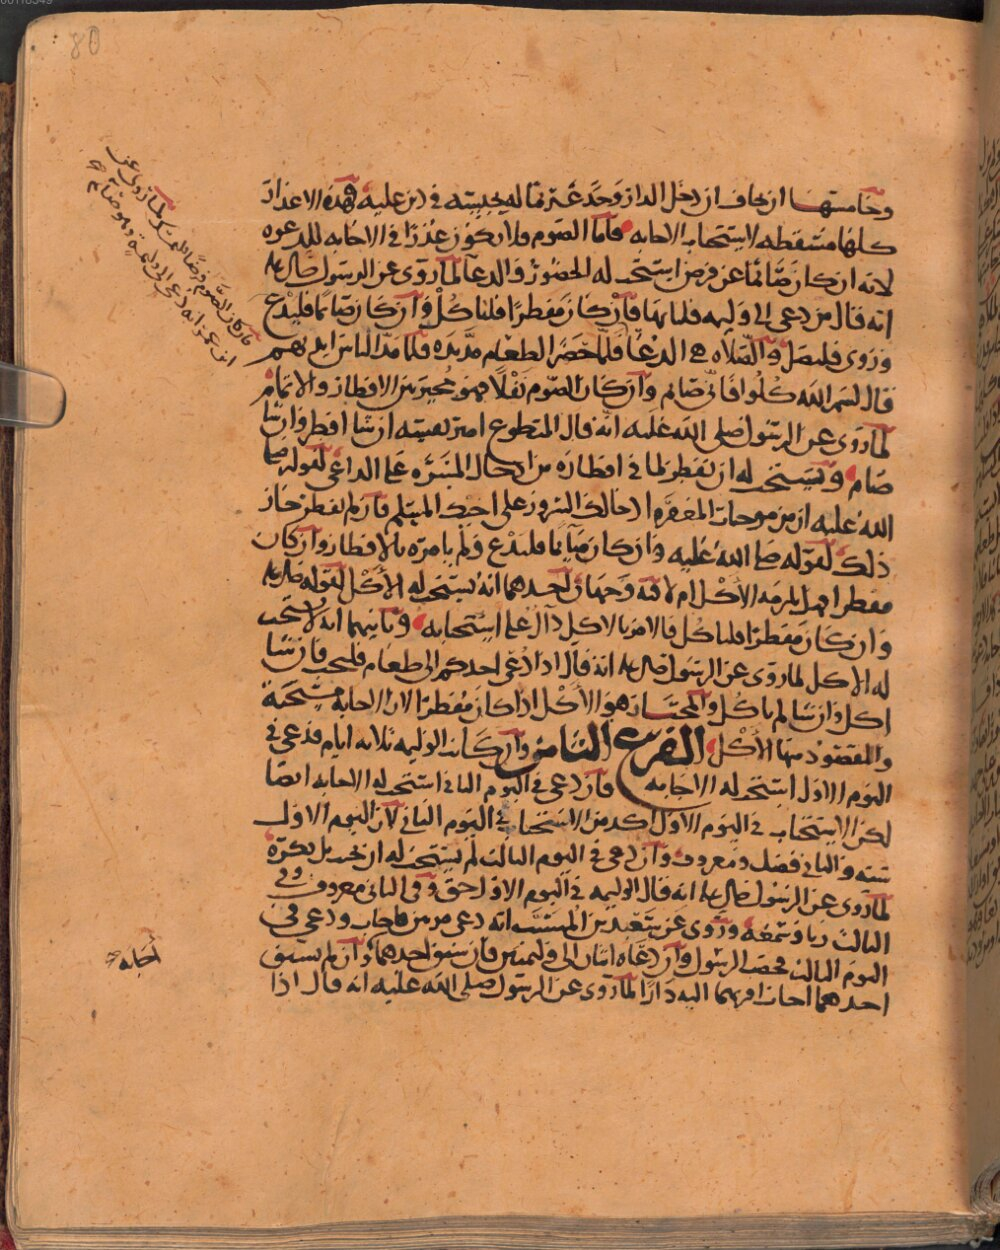 80
وخامستها ان يخاف ان دخل الدار وحد غير ماله بحبسته في دين عليه فهذه الاعذار
كلها مسقطه لاستحباب الاجابه فاما الصوم فلا يكون عذرًا في الاجابه للدعوه
لانه ان كان صائما عن فرض استحب له الحضور والدعا لما روى عن الرسول صلى الله عليه
انه قال من دعى الى وليمه فلياتها فان كان مفطرًا فلياكل وان كان صائما فليدع
وروى فليصل والصلاه هي الدعا فلما حضر الطعام مد يده فلما مد الناس ايديهم
قال بسم الله كلوا فاني صائم وان كان الصوم نفلًا فهو مخير بين الافطار والاتمام
لما روى عن الرسول صلى الله عليه انه قال المتطوع امير نفسه ان شا افطر وان شا
صام ويستحب له ان يفطر لما في افطاره من ادخال المسره على الداعي لقوله صلى
الله عليه ان من موجبات المغفره ادخالك السرور على اخيك المسلم فان لم يفطر جاز
ذلك لقوله صلى الله عليه وان كان صائما فليدع ولم يامره بالافطار وان كان
مفطرا فهل يلزمه الاكل ام لا فيه وجهان احدهما انه يستحب له الاكل لقوله صلى الله عليه
وان كان مفطرًا فلياكل فالامر بالاكل دال على استحبابه وثانيهما انه لا يستحب
له الاكل لما روى عن الرسول صلى الله عليه انه قال اذا دعى احدكم الى طعام فليجب فان شا
اكل وان شا لم ياكل والمختار هو الاكل اذا كان مفطرًا لان الاجابه مستحبة
والمقصود منها الاكل الفرع الثامن وان كانت الوليمه ثلاثه ايام فدعى في
اليوم الاول استحب له الاجابه فان دعى في اليوم الثاني استحب له الاجابه ايضا
لكن الاستحباب في اليوم الاول اكد من الاستحباب في اليوم الثاني لان اليوم الاول
سنه والثاني فضل ومعروف وان دعى في اليوم الثالث لم يستحب له ان يجيب بل يكره
لما روى عن الرسول صلى الله عليه انه قال الوليمه في اليوم الاول حق وفي الثاني معروف وفي
الثالث ريا وسمعه وروى عن سعيد بن المسيب انه دعى مرتين فاجاب ودعى في
اليوم الثالث فحصب الرسول وان دعاه اثنان الى وليمتين فان سبق احدهما وان لم يسبق
احدهما اجاب اقربهما اليه دارًا لما روى عن الرسول صلى الله عليه انه قال اذا
فان كان الصوم فرضًا لما روى عن
ابن عمر انه دعى الى وليمة وهو صائم
اجابه